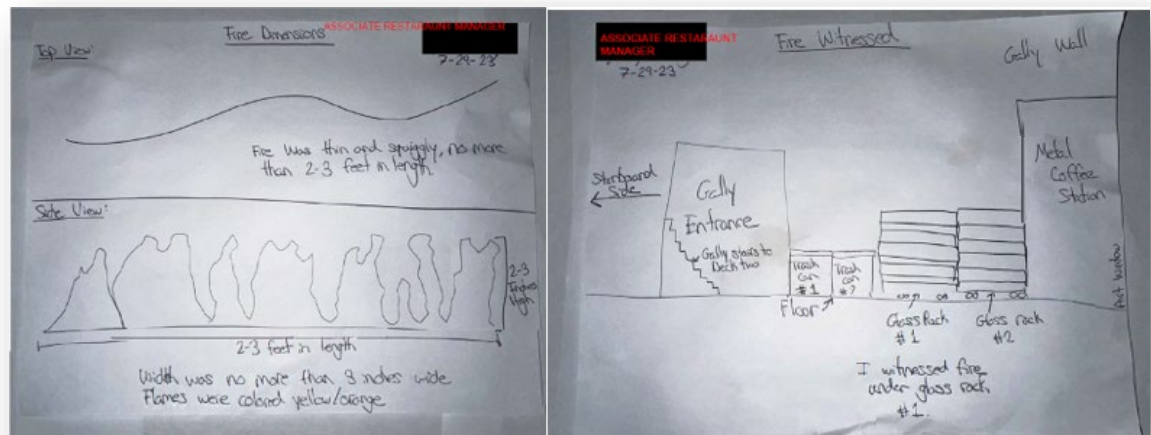 Fire Dimensions
ASSOCIATE RESTARAUNT MANAGER
7-29-23
Top View:
Fire was thin and squiggly, no more
than 2-3 feet in length
Side View:
2-3
Inches
High
2-3 feet in length
Width was no more than 3 inches wide
Flames were colored yellow/orange
ASSOCIATE RESTARAUNT
MANAGER
7-29-23
Fire Witnessed
Gally Wall
Starboard
Side
Gally
Entrance
Gally stairs to
Deck two
Trash
can
#1
Trash
can
#2
Floor
Metal
Coffee
Station
Aft Window
Glass Rack
#1
Glass rack
#2
I witnessed fire
under glass rack
#1.